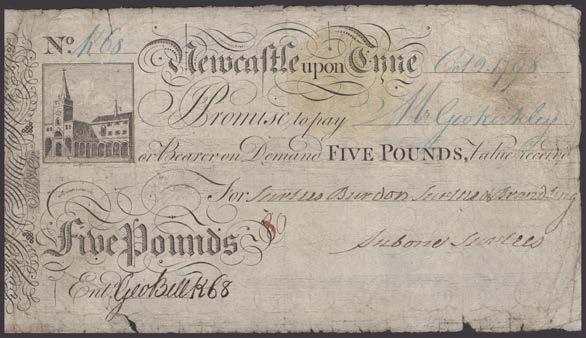 No. K68
Newcastle upon Tyne Oct 9. 1798
Promise to pay Mr Geo Kirkley
or Bearer on Demand FIVE POUNDS, Value receiv'd
For Surtees Burdon Surtees & Brandling
Five Pounds
Aubone Surtees
Ent. Geo Bell K68